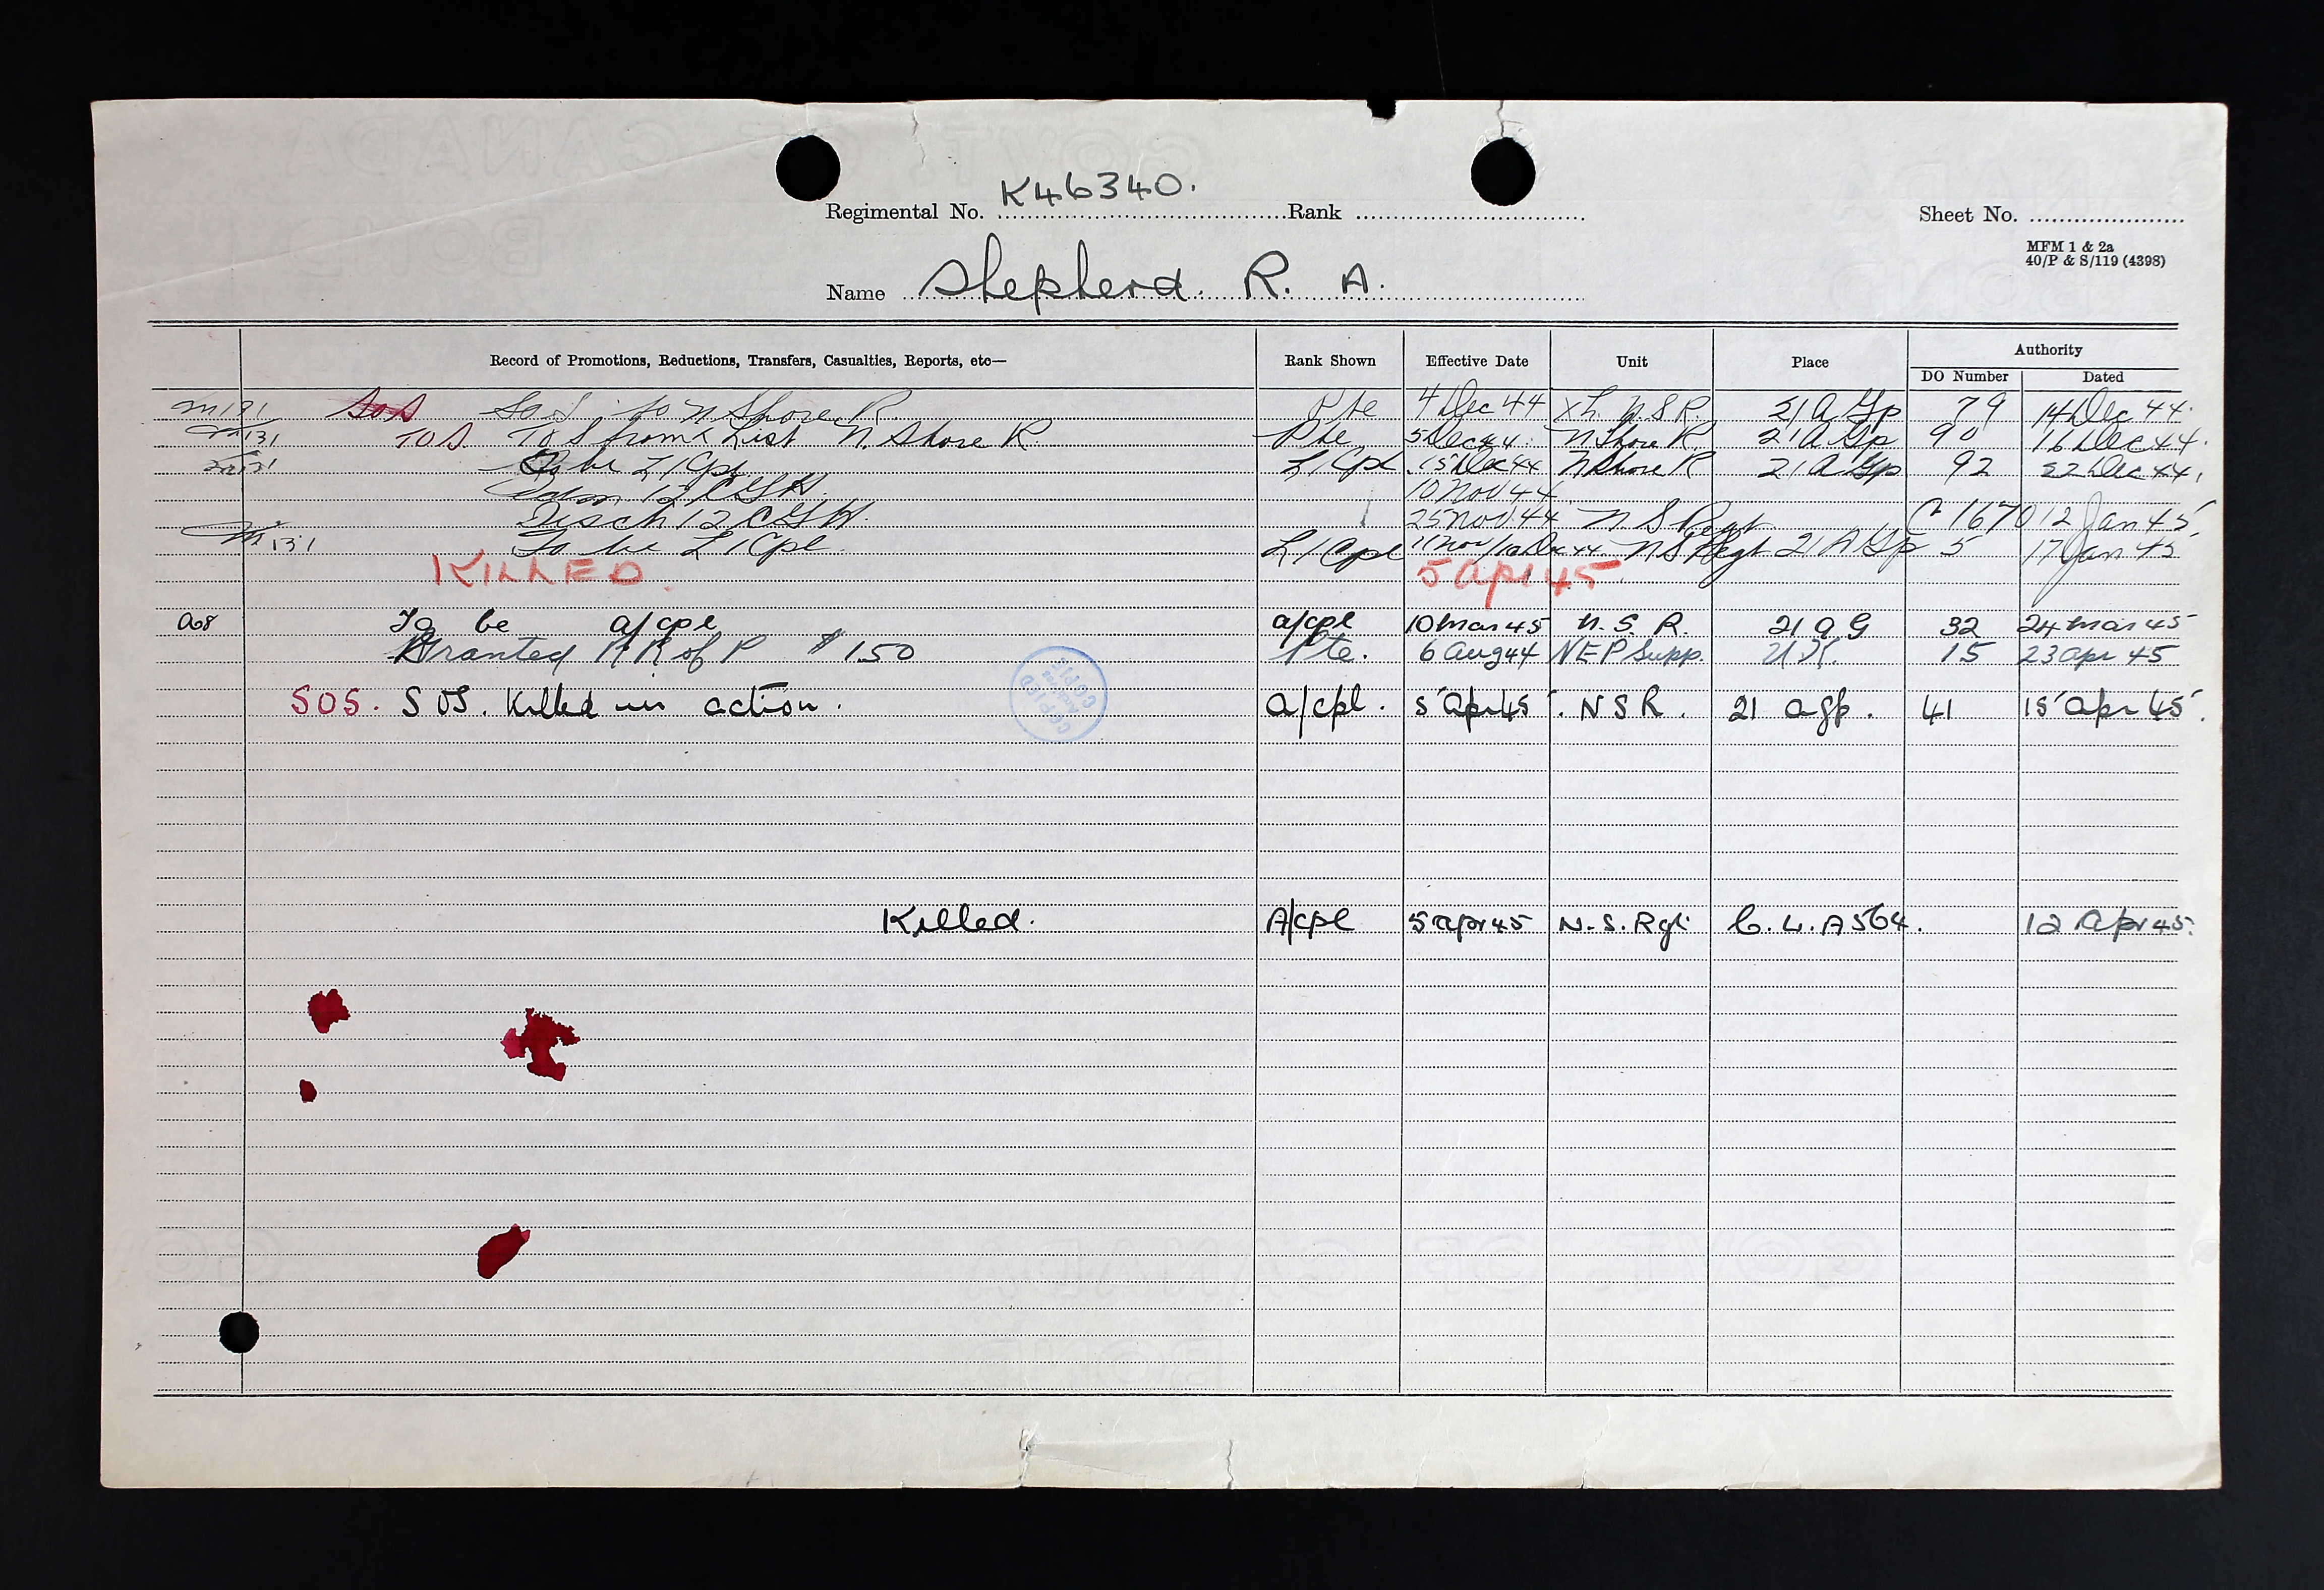 K46340.
Regimental No. Rank Sheet No.
MFM 1 & 2a
40/P & S/119 (4398)
Name Shepherd. R. A.
Record of Promotions, Reductions, Transfers, Casualties, Reports, etc— Rank Shown Effective Date Unit Place Authority
DO Number Dated
SOS SOS to N Shore R Pte 4 Dec 44 XL. N.S.R. 21 A Gp 79 14 Dec 44.
TOS TOS from X List N. Shore R Pte 5 Dec 44 N Shore R 21 A Gp 90 16 Dec 44.
To be L/Cpl L/Cpl 15 Dec 44 N Shore R 21 A Gp 92 22 Dec 44.
Adm 12 CGH. 10 Nov 44
Disch 12 CGH. 25 Nov 44 N S Regt C 1670 12 Jan 45
To be L/Cpl L/Cpl 11 Nov/10 Dec 44 NS Regt 21 A Gp 5 17 Jan 45
KILLED. 5 Apr 45
A68 To be a/cpl a/cpl 10 Mar 45 N.S.R. 21 A G 32 24 Mar 45
Granted RR of P $1.50 Pte. 6 Aug 44 NEP Supp. UK. 15 23 Apr 45
SOS. SOS. Killed in action. A/cpl. 5 Apr 45. NSR. 21 agp. 41 15 Apr 45.
COPIED
COPIÉ
Killed. A/cpl 5 Apr 45 N.S. Rgt C.L. A564. 12 Apr 45.
GOVT. OF CANADA
BOND